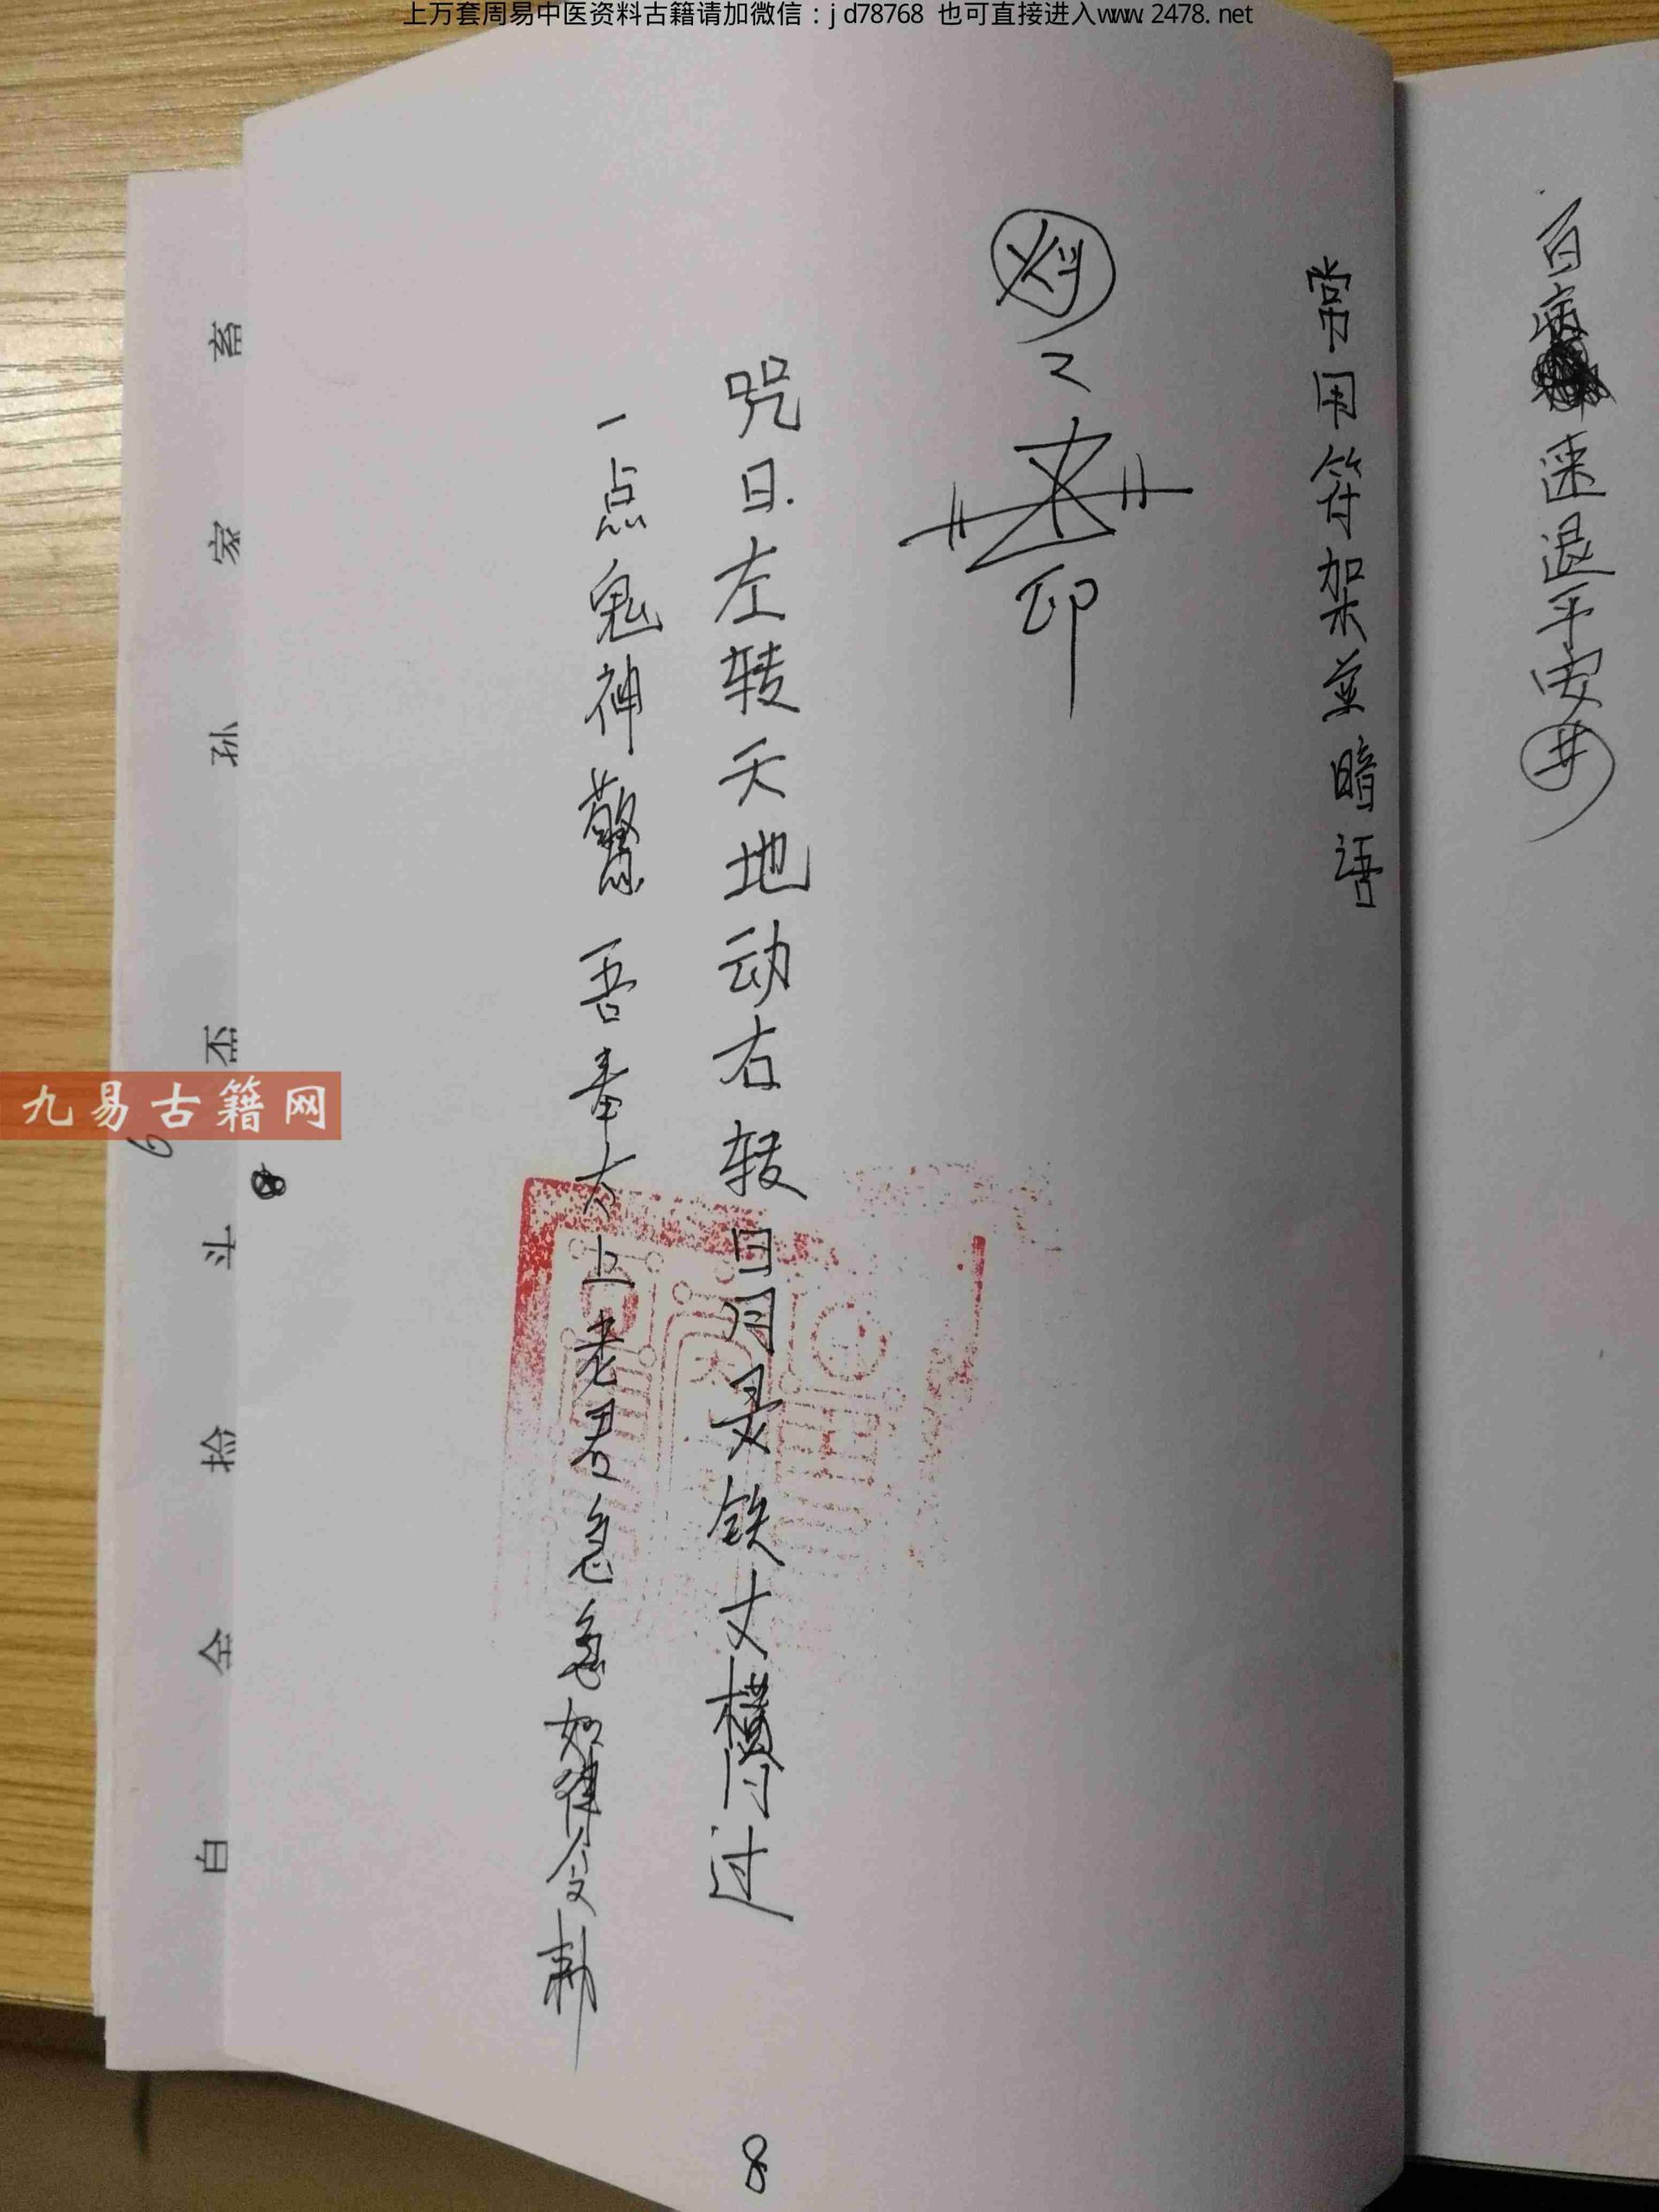 上万套周易中医资料古籍请加微信：jd78768 也可直接进入www.2478.net
百病速退平安井
常用符架並暗语
印
咒曰.左转天地动右转日月灵铁丈闩过
一点鬼神警吾奉太上老君急急如律令敕
8
九易古籍网
畜家孙盃斗捡仝白
6